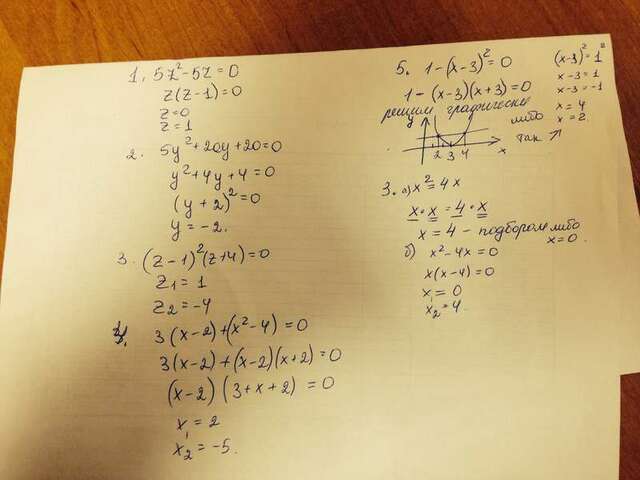 1. 5z²-5z=0
z(z-1)=0
z=0
z=1
2. 5y²+20y+20=0
y²+4y+4=0
(y+2)²=0
y=-2.
3. (z-1)²(z+4)=0
z₁=1
z₂=-4
4. 3(x-2)+(x²-4)=0
3(x-2)+(x-2)(x+2)=0
(x-2)(3+x+2)=0
x₁=2
x₂=-5.
5. 1-(x-3)²=0
1-(x-3)(x+3)=0
решим графически
либо
так ↗
y
2 3 4
x
(x-3)²=1²
x-3=1
x-3=-1
x=4
x=2.
3. а) x²=4x
x·x=4·x
x=4 - подбором либо
x=0.
б) x²-4x=0
x(x-4)=0
x₁=0
x₂=4.